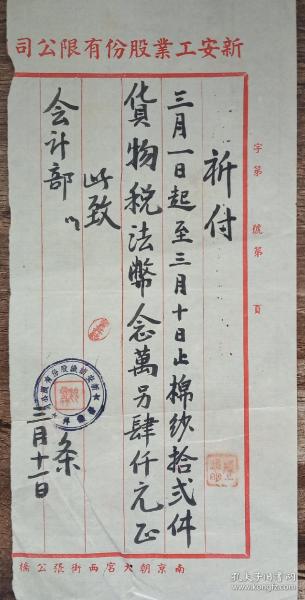 新安工業股份有限公司
字第 號第 頁
祈付
三月一日起至三月十日止棉紗拾弍件
貨物税法幣念萬另肆仟元正
此致
会计部
三月十二日条
南京朝天宮西街張公橋